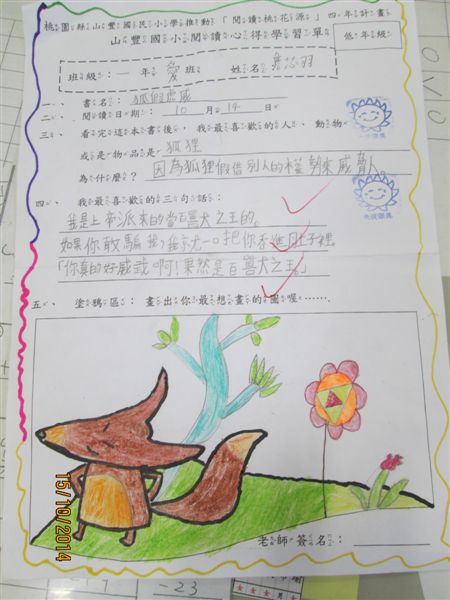 桃園縣山豐國民小學推動「閱讀桃花源」四年計畫
山豐國小閱讀心得學習單
低年級
班級：一年愛班 姓名
一、書名：狐假虎威
二、閱讀日期：10月14日
三、看完這本書後，我最喜歡的人、動物
或是物品是 狐狸
為什麼？因為狐狸假借別人的權勢來威脅人。
四、我最喜歡的三句話：
我是上帝派來的當百獸之王的。
如果你敢騙我，我就一口把你吞進肚子裡
「你真的好威武啊！果然是百獸之王。」
五、塗鴉區：畫出你最想畫的圖喔……
15/10/2014
老師簽名：
-23